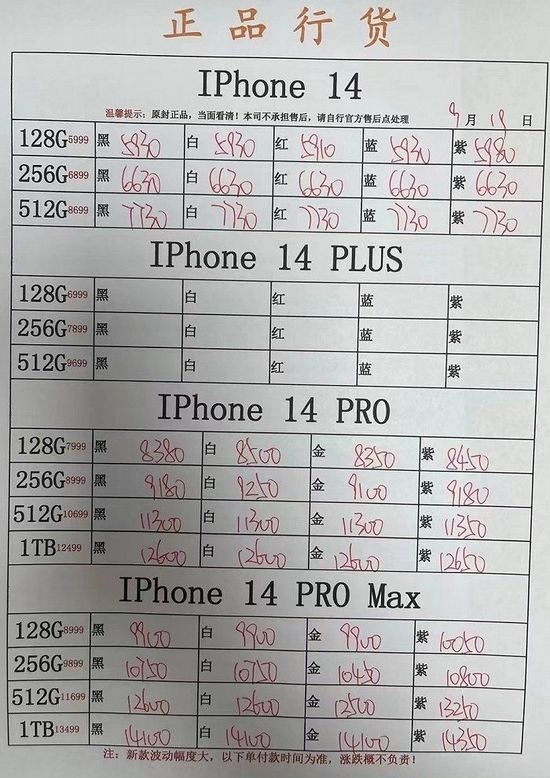 正品行货
IPhone 14
温馨提示：原封正品，当面看清！本司不承担售后，请自行官方售后点处理 9月19日
128G5999 黑 5930 白 5930 红 5910 蓝 5930 紫 5980
256G6899 黑 6630 白 6630 红 6630 蓝 6630 紫 6630
512G8699 黑 7730 白 7730 红 7730 蓝 7730 紫 7730
IPhone 14 PLUS
128G6999 黑 白 红 蓝 紫
256G7899 黑 白 红 蓝 紫
512G9699 黑 白 红 蓝 紫
IPhone 14 PRO
128G7999 黑 8380 白 8500 金 8350 紫 8450
256G8999 黑 9180 白 9250 金 9100 紫 9180
512G10699 黑 11300 白 11300 金 11300 紫 11350
1TB12499 黑 12600 白 12600 金 12600 紫 12650
IPhone 14 PRO Max
128G8999 黑 9900 白 9900 金 9900 紫 10050
256G9899 黑 10750 白 10750 金 10450 紫 10800
512G11699 黑 12600 白 12600 金 12500 紫 13250
1TB13499 黑 14100 白 14100 金 14100 紫 14350
注：新款波动幅度大，以下单付款时间为准，涨跌概不负责！